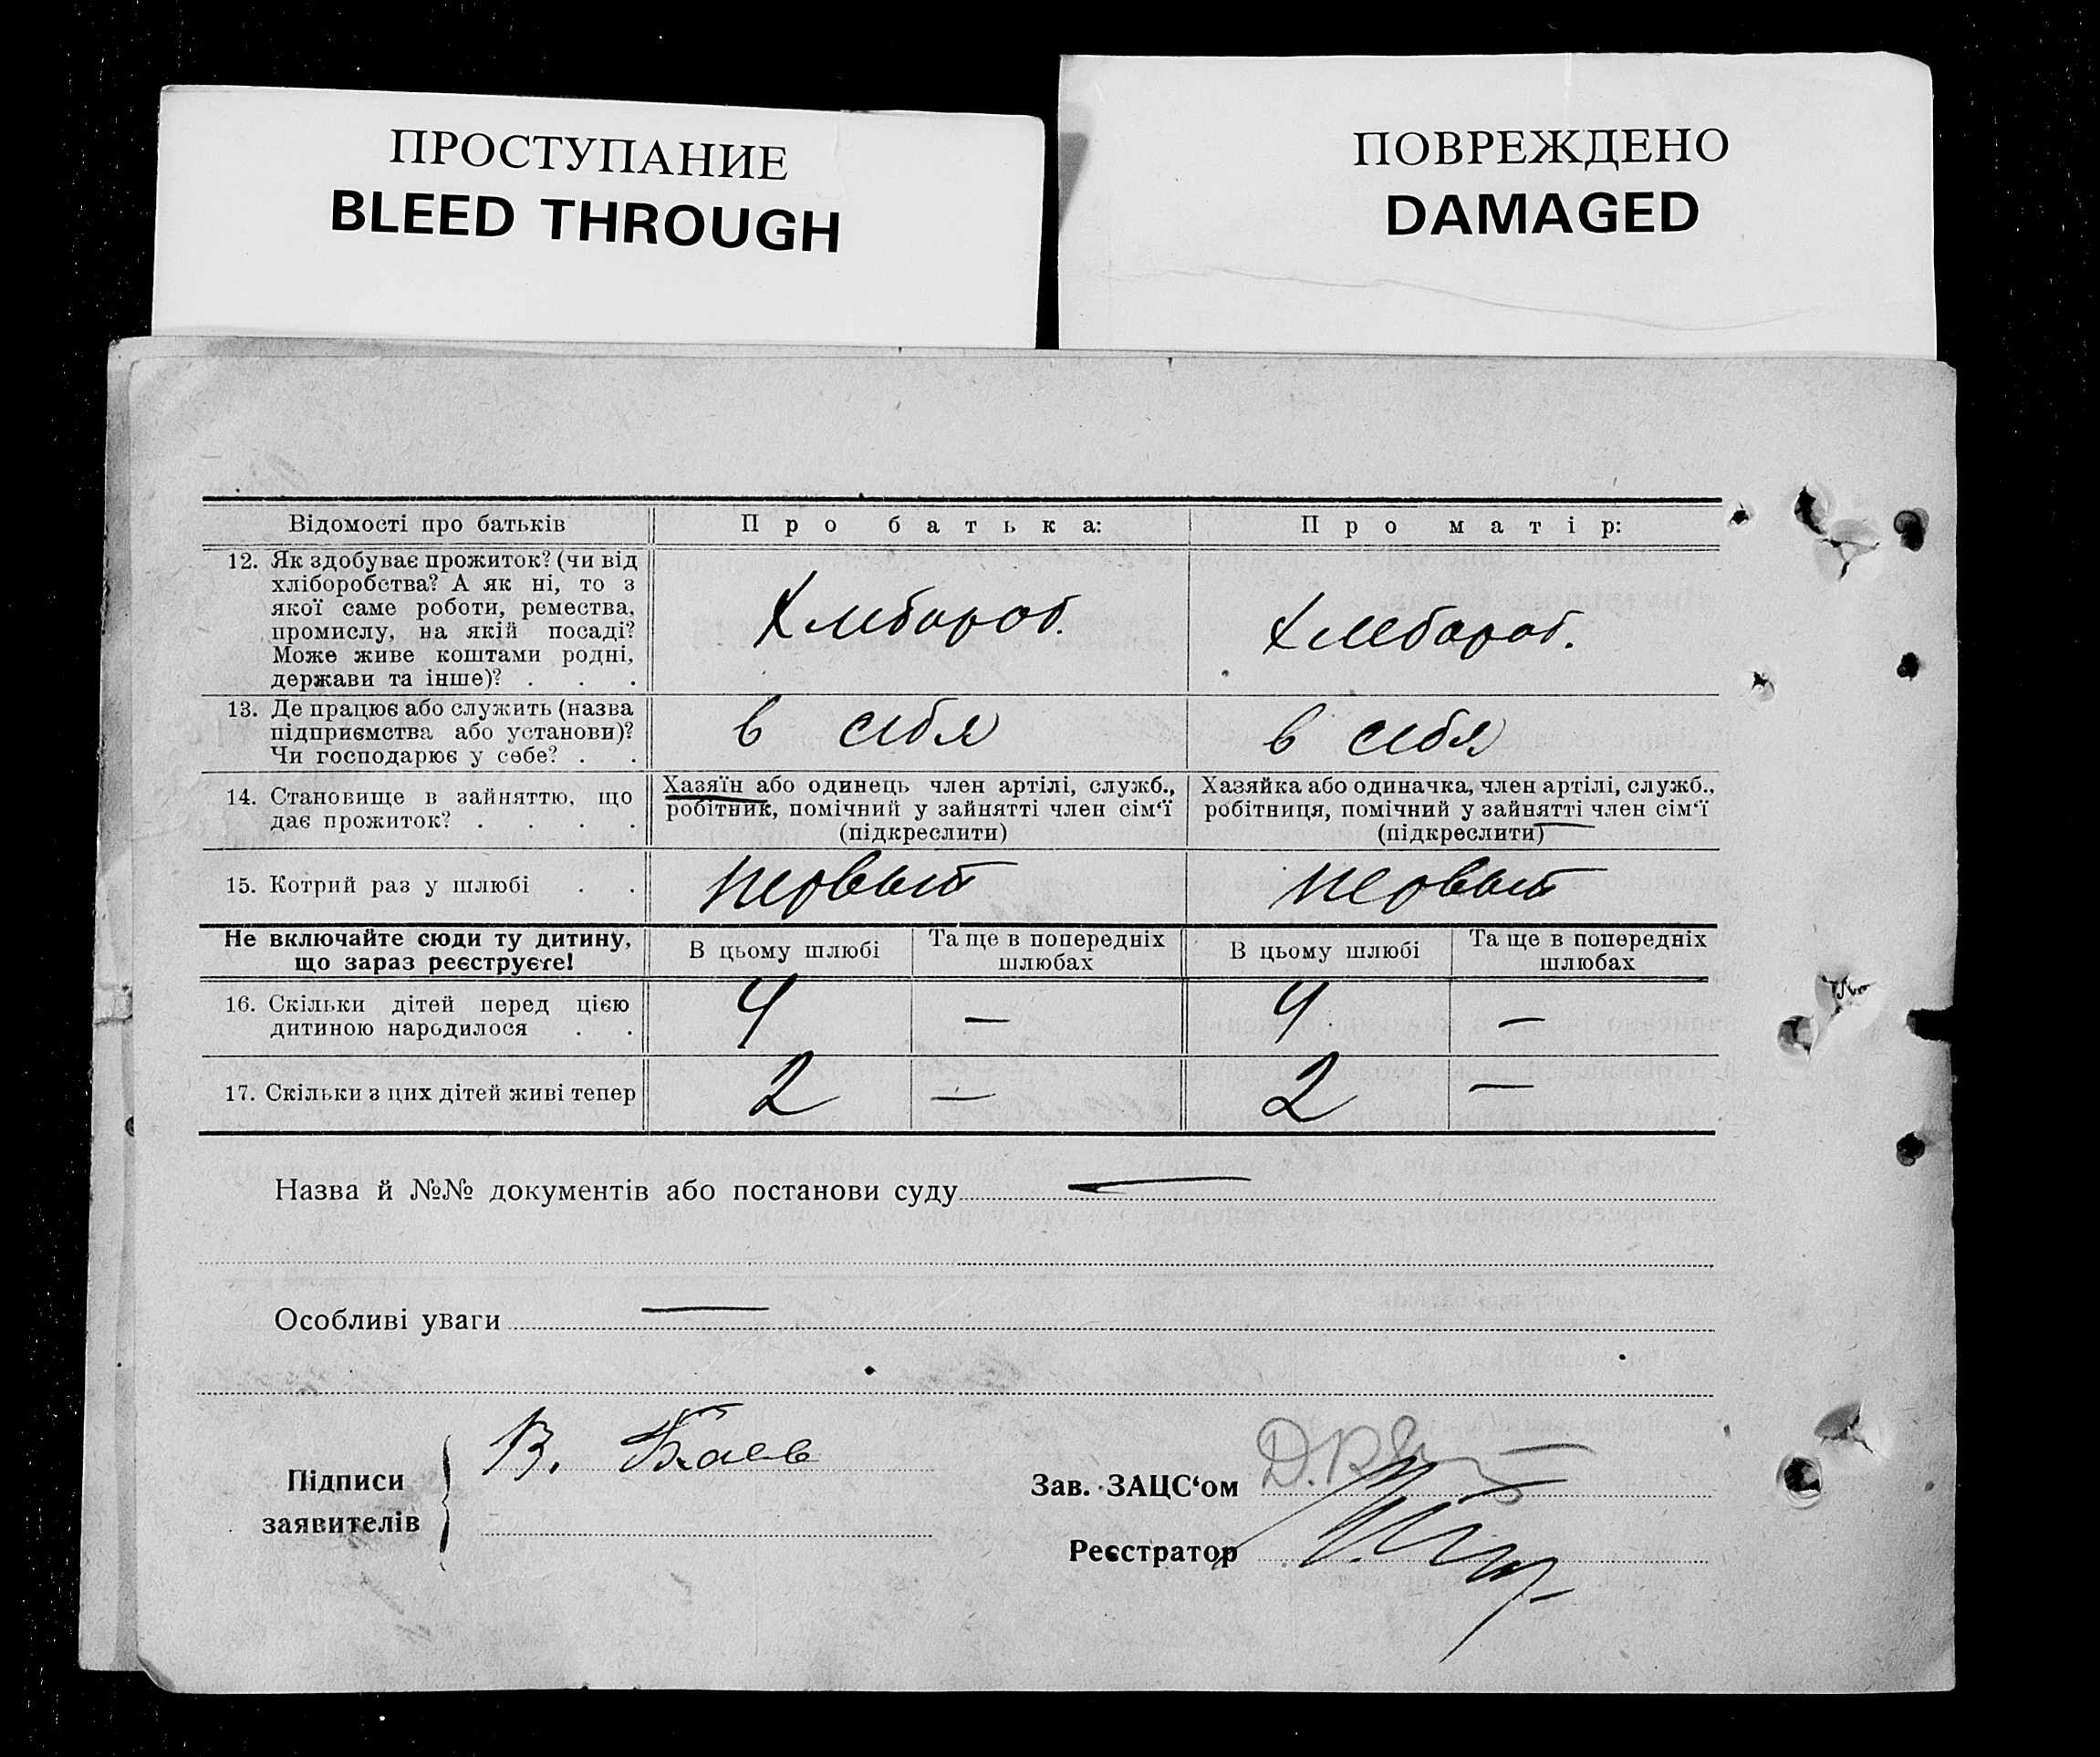 ПРОСТУПАНИЕ
BLEED THROUGH
ПОВРЕЖДЕНО
DAMAGED
Відомості про батьків
Про батька:
Про матір:
12. Як здобуває прожиток? (чи від
хліборобства? А як ні, то з
якої саме роботи, ремества,
промислу, на якій посаді?
Може живе коштами родні,
держави та інше)? . . .
Хлебороб.
Хлебороб.
13. Де працює або служить (назва
підприємства або установи)?
Чи господарює у себе? . .
в себя
в себя
14. Становище в зайняттю, що
дає прожиток? . . . .
Хазяїн або одинець член артілі, служб.,
робітник, помічний у зайнятті член сім‘ї
(підкреслити)
Хазяйка або одиначка, член артілі, служб.,
робітниця, помічний у зайнятті член сім‘ї
(підкреслити)
15. Котрий раз у шлюбі . .
первый
первый
Не включайте сюди ту дитину,
що зараз реєструєте!
В цьому шлюбі
Та ще в попередніх
шлюбах
В цьому шлюбі
Та ще в попередніх
шлюбах
16. Скільки дітей перед цією
дитиною народилося . .
4
—
4
—
17. Скільки з цих дітей живі тепер
2
—
2
—
Назва й №№ документів або постанови суду —
Особливі уваги —
Підписи
заявителів
В. Баев
Зав. ЗАЦС‘ом
Реєстратор